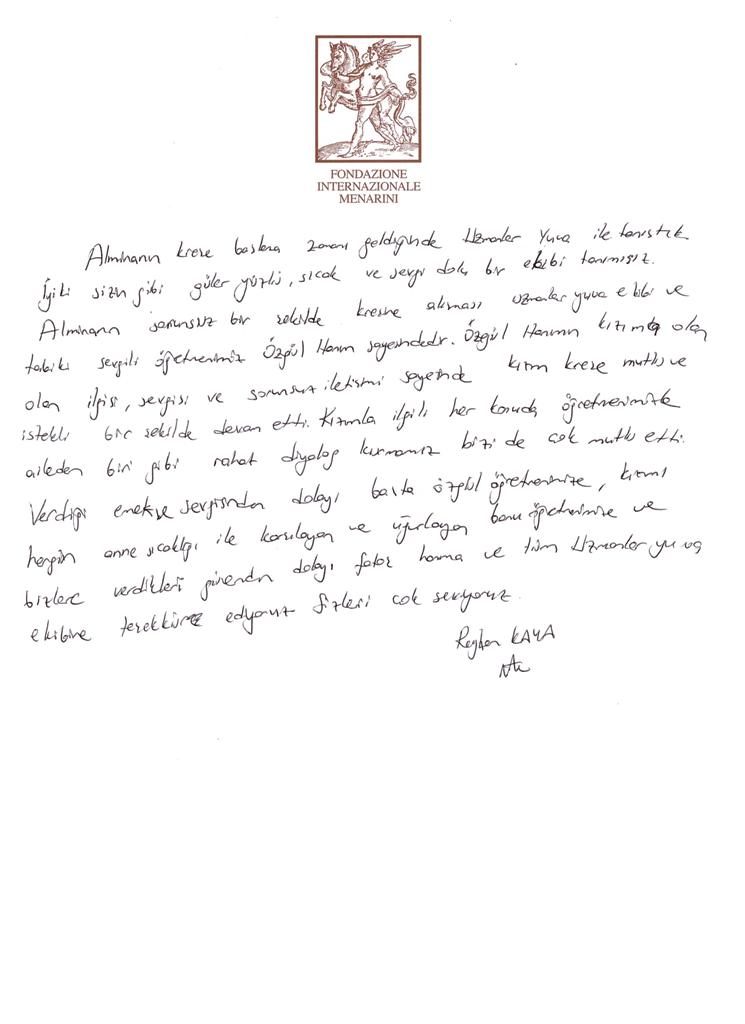 FONDAZIONE
INTERNAZIONALE
MENARINI
Alminanın kreşe başlama zamanı geldiğinde Uzmanlar Yuva ile tanıştık
İyiki sizin gibi güler yüzlü, sıcak ve sevgi dolu bir ekibi tanımışız.
Alminanın sorunsuz bir şekilde kreşine alışması uzmanlar yuva ekibi ve
tabiki sevgili öğretmenimiz Özgül Hanım sayesindedir. Özgül Hanımın kızıma olan
olan ilgisi, sevgisi ve sorunsuz iletişimi sayesinde kızım kreşe mutlu ve
istekli bir şekilde devam etti. Kızımla ilgili her konuda öğretmenimizle
aileden biri gibi rahat diyalog kurmamız bizi de çok mutlu etti.
Verdiği emek ve sevgisinden dolayı başta özgül öğretmenimize, kızımı
hergün anne sıcaklığı ile karşılayan ve uğurlayan banu öğretmenimize ve
bizlere verdikleri güvenden dolayı hanıma ve tüm Uzmanlar yuva
ekibine teşekkür ediyoruz Sizleri çok seviyoruz.
Reyhan KAYA